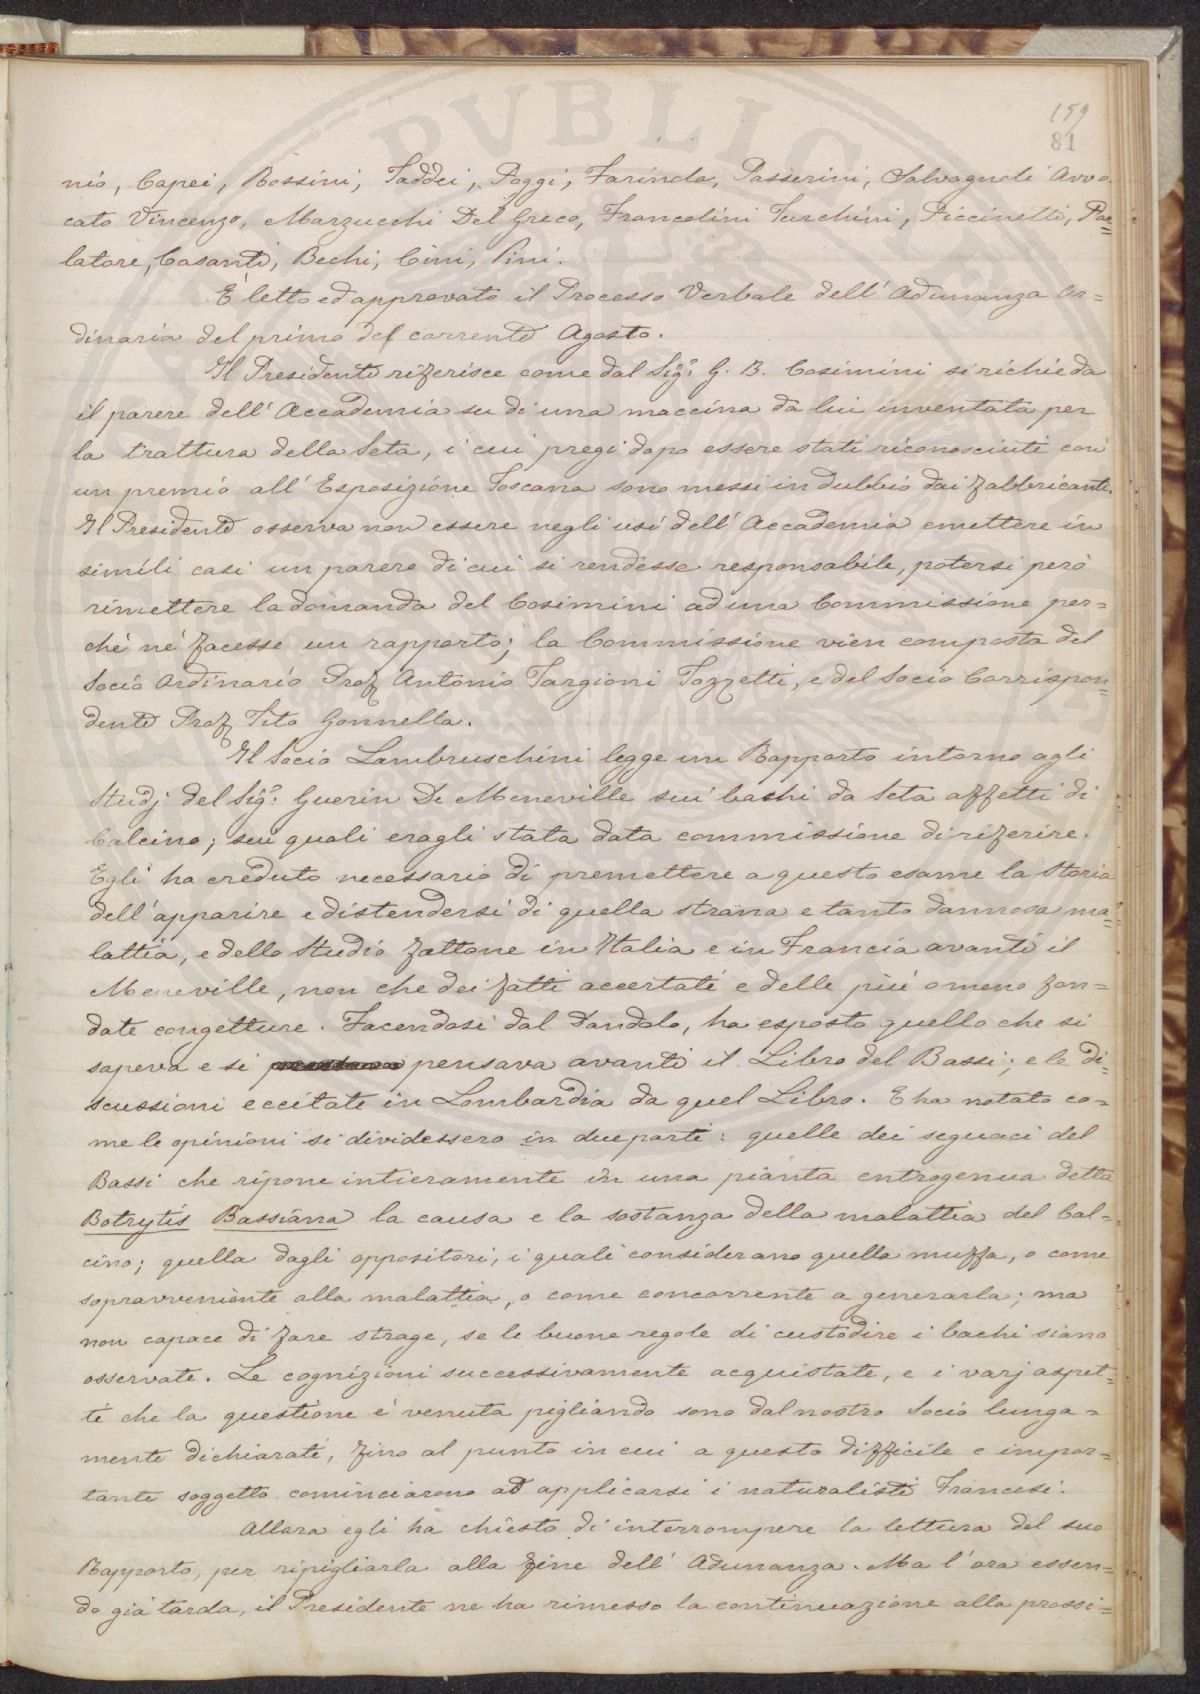 159
81
nio, Capei, Rossini, Taddei, Poggi, Farinola, Passerini, Salvagnoli Avvo-
cato Vincenzo, Marzucchi Del Greco, Francolini Turchini, Piccinetti, Par=
latore, Casanti, Bechi, Cini, Pini.
È letto ed approvato il Processo Verbale dell' Adunanza Or=
dinaria del primo del corrente Agosto.
Il Presidente riferisce come dal Sig.r G. B. Cosimini si richieda
il parere dell' Accademia su di una maccina da lui inventata per
la trattura della Seta, i cui pregi dopo essere stati riconosciuti con
un premio all' Esposizione Toscana sono messi in dubbio dai fabbricanti.
Il Presidente osserva non essere negli usi dell' Accademia emettere in
simili casi un parere di cui si rendesse responsabile, potersi però
rimettere la domanda del Cosimini ad una Commissione per=
chè ne facesse un rapporto; la Commissione vien composta del
Socio Ordinario Prof Antonio Targioni Tozzetti, e del Socio Corrispon=
dente Prof Tito Gonnella.
Il Socio Lambruschini legge un Rapporto intorno agli
Studj del Sig.r Guerin De Meneville sui bachi da Seta affetti di
Calcino; sui quali eragli stata data commissione di riferire.
Egli ha creduto necessario di premettere a questo esame la Storia
dell' apparire e distendersi di quella strana e tanto dannosa ma=
lattia, e dello Studio fattone in Italia e in Francia avanti il
Meneville, non che dei fatti accertati e delle più o meno fon=
date congetture. Facendosi dal Dandolo, ha esposto quello che si
sapeva e si pensava avanti il Libro del Bassi; e le di=
scussioni eccitate in Lombardia da quel Libro. E ha notato co=
me le opinioni si dividessero in due parti: quelle dei seguaci del
Bassi che ripone intieramente in una pianta entrogenua detta
Botrytis Bassiana la causa e la sostanza della malattia del Cal=
cino; quella dagli oppositori, i quali considerano quella muffa, o come
sopravveniente alla malattia, o come concorrente a generarla; ma
non capace di fare strage, se le buone regole di custodire i bachi siano
osservate. Le cognizioni successivamente acquistate, e i varj aspet=
ti che la questione è venuta pigliando sono dal nostro Socio lunga=
mente dichiarati, fino al punto in cui a questo difficile e impor=
tante soggetto cominciarono ad applicarsi i naturalisti Francesi.
Allora egli ha chiesto di interrompere la lettura del suo
Rapporto, per ripigliarla alla fine dell' Adunanza. Ma l'ora essen=
do già tarda, il Presidente ne ha rimesso la continuazione alla prossi=